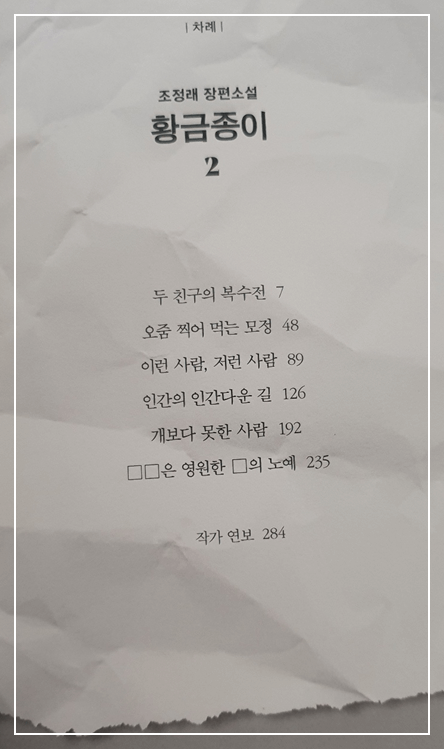 | 차례 |
조정래 장편소설
황금종이
2
두 친구의 복수전 7
오줌 찍어 먹는 모정 48
이런 사람, 저런 사람 89
인간의 인간다운 길 126
개보다 못한 사람 192
□□은 영원한 □의 노예 235
작가 연보 284